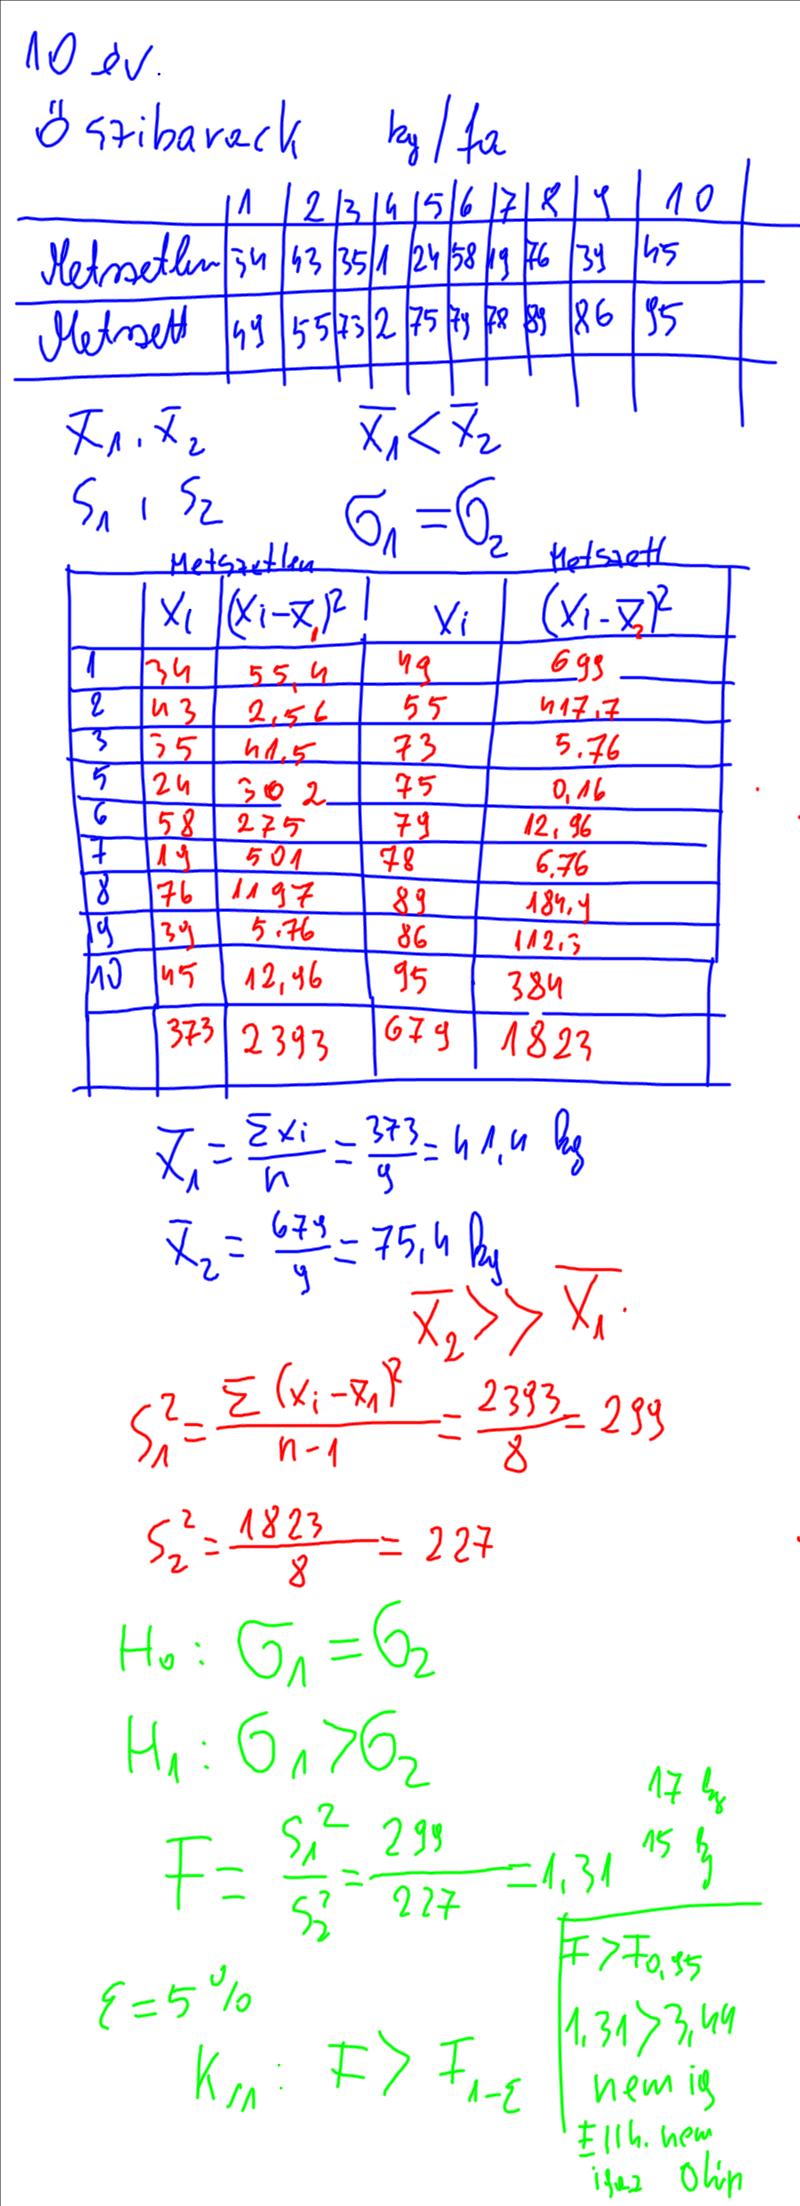 10 év.
Őszibarack kg/fa
1 2 3 4 5 6 7 8 9 10
Metszetlen 34 43 35 1 24 58 19 76 39 45
Metszett 49 55 73 2 75 79 78 89 86 95
x̄₁, x̄₂ x̄₁ < x̄₂
S₁, S₂ σ₁ = σ₂
Metszetlen Metszett
xi (xi-x̄₁)² xi (xi-x̄₂)²
1 34 55,4 49 699
2 43 2,56 55 417,7
3 35 41,5 73 5.76
5 24 302 75 0,16
6 58 275 79 12,96
7 19 501 78 6,76
8 76 1197 89 184,9
9 39 5.76 86 112,3
10 45 12,96 95 384
373 2393 679 1823
x̄₁ = Σxi/n = 373/9 = 41,4 kg
x̄₂ = 679/9 = 75,4 kg
x̄₂ >> x̄₁.
S₁² = Σ(xi-x̄₁)²/n-1 = 2393/8 = 299
S₂² = 1823/8 = 227
H₀: σ₁ = σ₂
H₁: σ₁ > σ₂
17 kg
15 kg
F = S₁²/S₂² = 299/227 = 1,31
F > F0,95
ε = 5%
1,31 > 3,44
K₁₁: F > F1-ε
nem ig
Ellh. nem
igaz 0hip